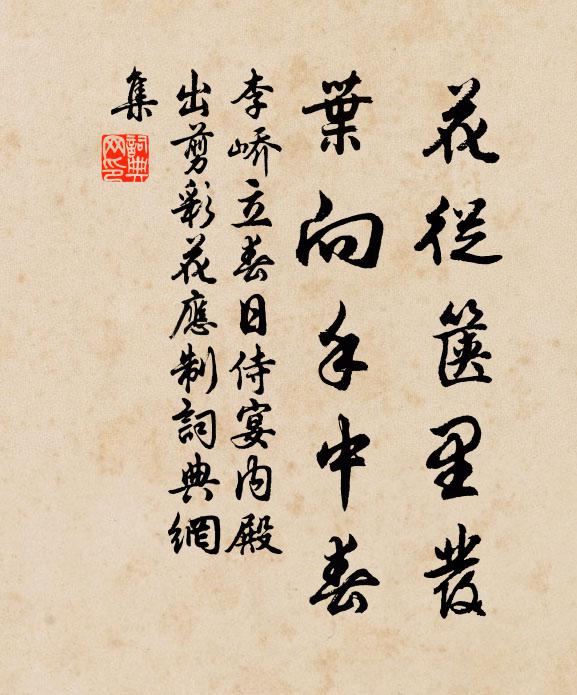 花從篋里發
葉向手中春
李嶠立春日侍宴内殿
出剪彩花應制詞典網
集
詞典
网印